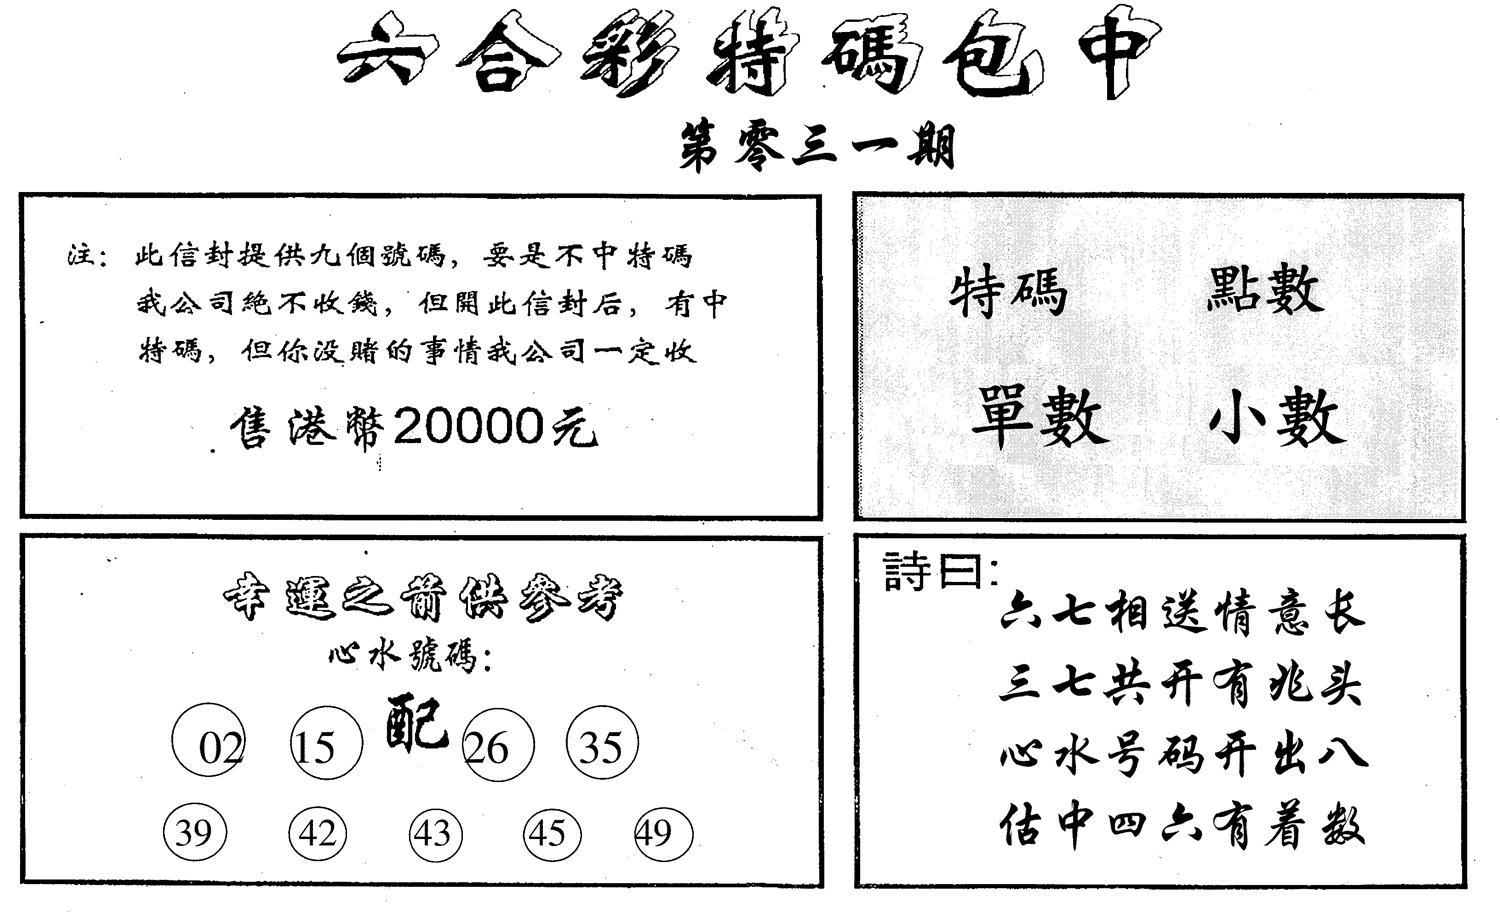 六合彩特碼包中
第零三一期
注：此信封提供九個號碼，要是不中特碼
我公司絕不收錢，但開此信封后，有中
特碼，但你没賭的事情我公司一定收
售港幣20000元
特碼 點數
單數 小數
幸運之箭供參考
心水號碼：
02 15 配 26 35
39 42 43 45 49
詩曰：
六七相送情意长
三七共开有兆头
心水号码开出八
估中四六有着数